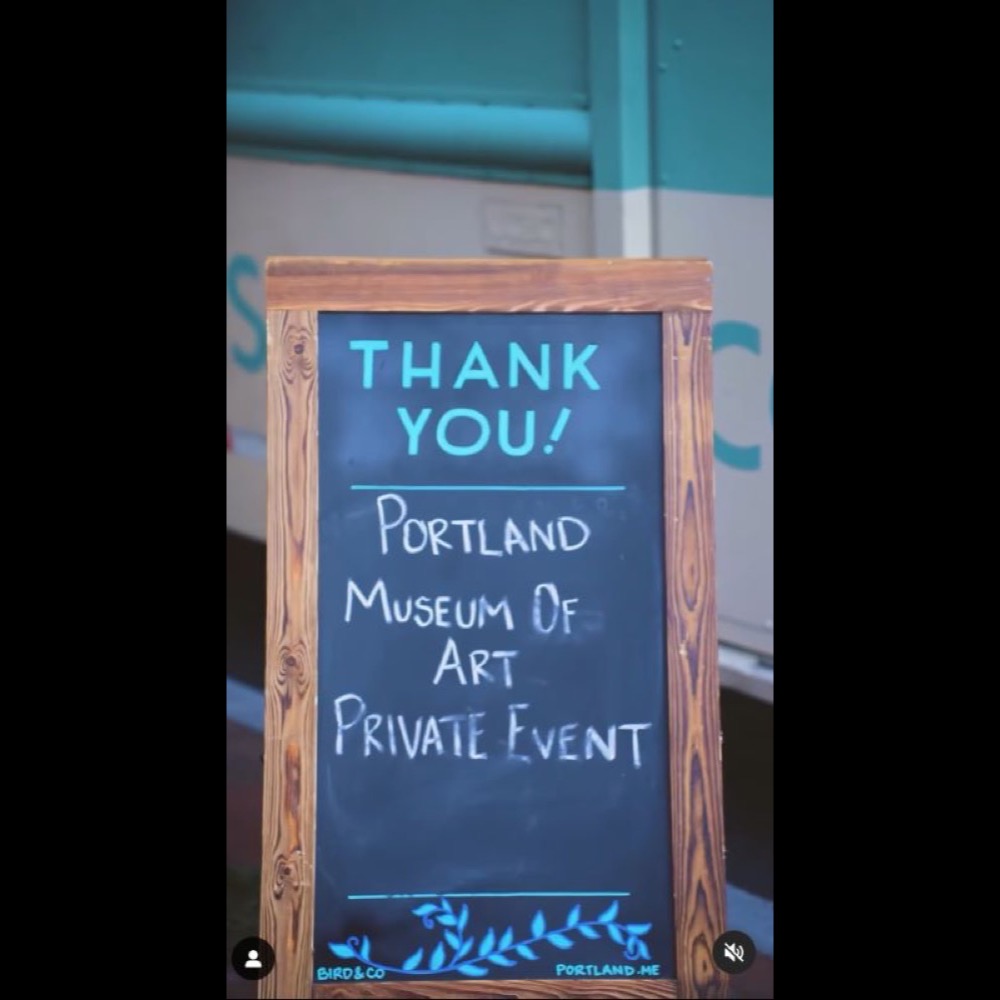 THANK
YOU!
PORTLAND
MUSEUM OF
ART
PRIVATE EVENT
BIRD & CO
PORTLAND.ME